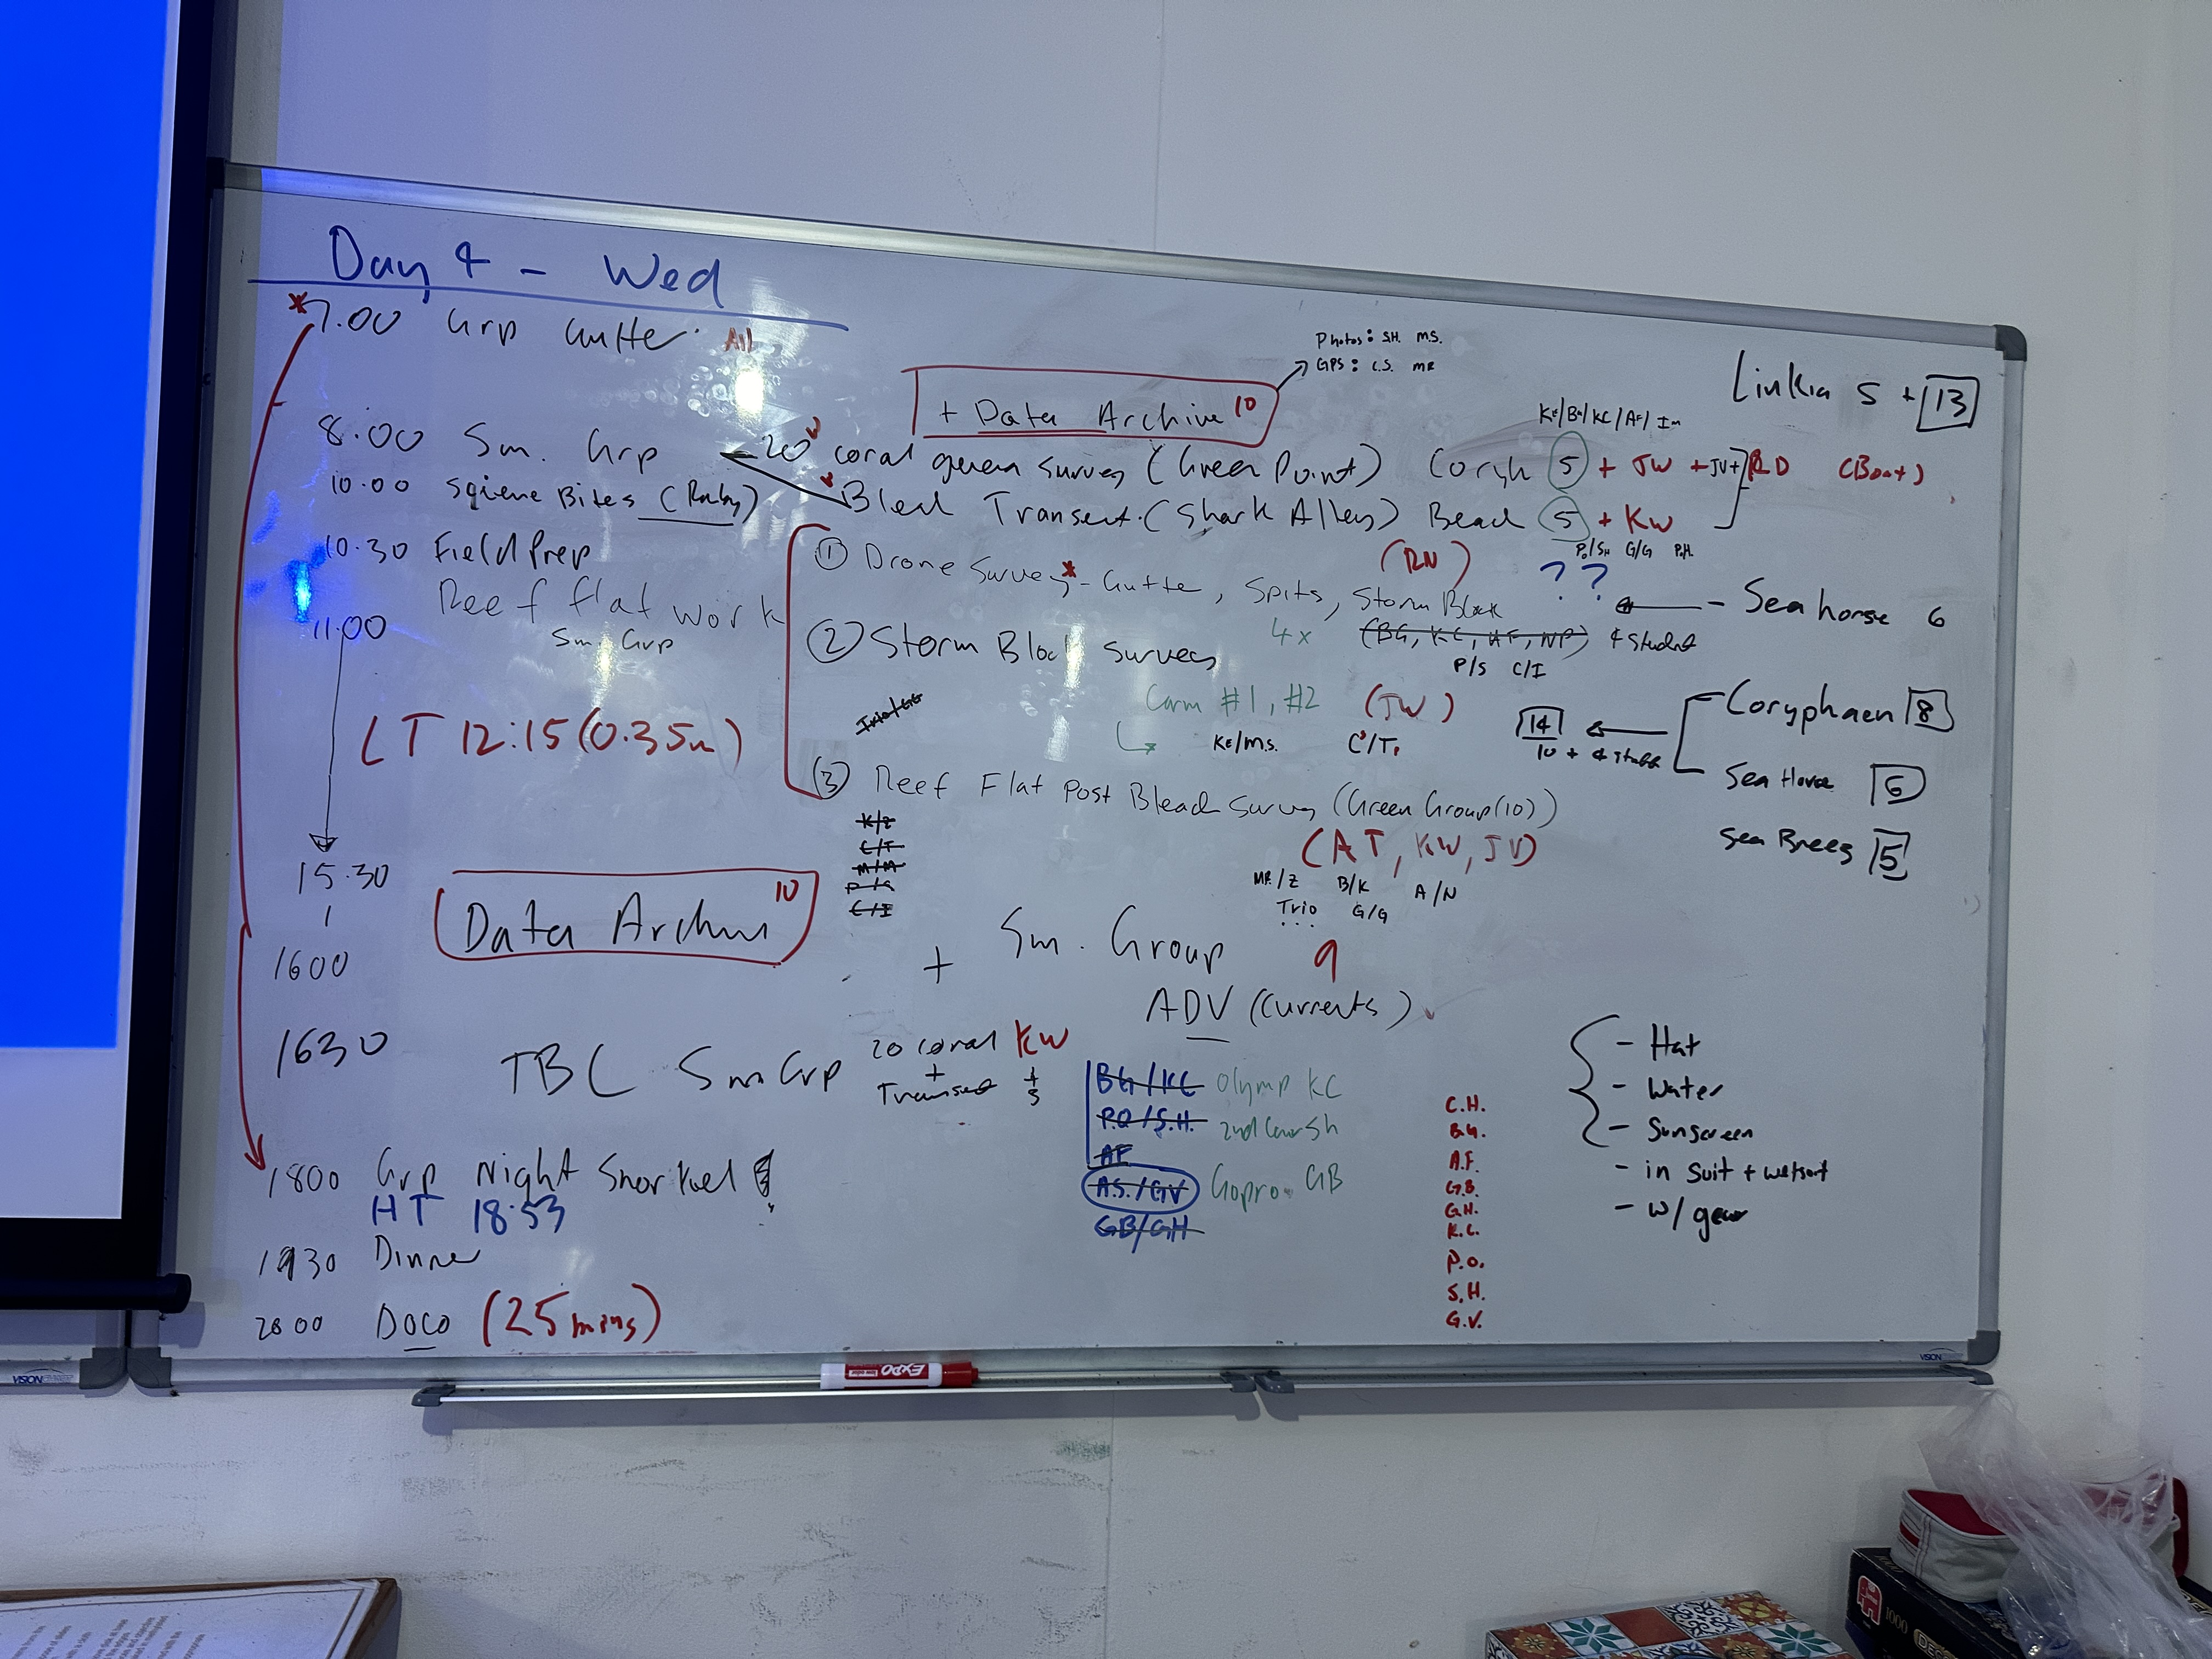 Day 4 - Wed
*7.00 Grp Gutte. All
Photos: S.H. M.S.
GPS: C.S. MR
+ Data Archive 10
Linkia 5 + 13
8.00 Sm. Grp
20 coral survey (Green Point)
5 + JW + JV + RD (Boat)
10.00 Bites
Bleach Transect. (Shark Alley) Beach 5 + KW
P.O/SH G/G P.H.
10.30 Field Prep
① Drone Survey* - Gutte, Spits, Storm Block
(RN)
? ?
- Sea horse 6
11.00 Reef flat work
Sm. Grp
② Storm Block Surveys 4x
(BG, KC, AF, NP) 4 student
P/S C/I
Corm #1, #2 (JW)
KE/M.S.
14
10 + 4 staff
Coryphaen 8
Sea Horse 6
Sea Breeg 5
LT 12:15 (0.35m)
③ Reef Flat Post Bleach Survey (Green Group (10))
K/Z
C/T
M/M
C/I
(AT, KW, JV)
MR/Z B/K A/N
Trio G/G
15.30
1600
Data Archive 10
+ Sm. Group 9
ADV (currents)
1630 TBC Sm Grp 20 coral + Transect KW + 5
BG/KC Olymp KC
P.O/S.H.
AF
A.S./GV Gopro GB
GB/GH
C.H.
B.G.
A.F.
G.B.
G.H.
K.C.
P.O.
S.H.
G.V.
- Hat
- Water
- Sunscreen
- in suit + wetsuit
- w/ gear
1800 Grp Night Snorkel
HT 18:53
1930 Dinner
2000 Doco (25 mins)
EXPO
VISION
VISION
1000